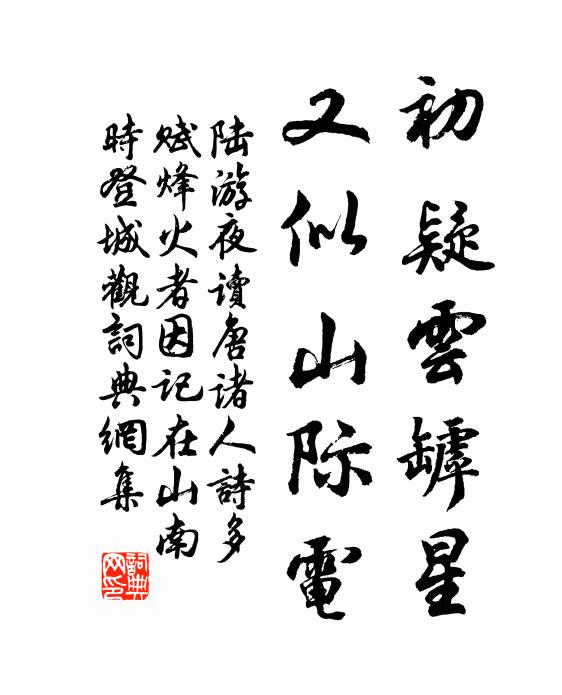 初疑雲罅星
又似山际電
陆游夜读唐诸人詩多
赋烽火者因记在山南
時登城觀詞典網集
詞典
网印